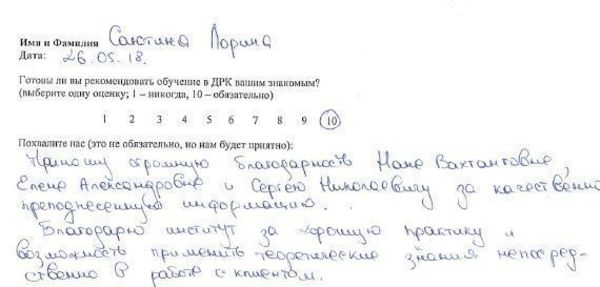 Имя и Фамилия Саютина Лорина
Дата: 26.05.18.
Готовы ли вы рекомендовать обучение в ДРК вашим знакомым?
(выберите одну оценку; 1 – никогда, 10 – обязательно)
1 2 3 4 5 6 7 8 9 10
Похвалите нас (это не обязательно, но нам будет приятно):
Приношу огромную благодарность Нане Вахтанговне,
Елене Александровне и Сергею Николаевичу за качественно
преподнесенную информацию.
Благодарю институт за хорошую практику и
возможность применить теоретические знания непосред-
ственно в работе с клиентом.